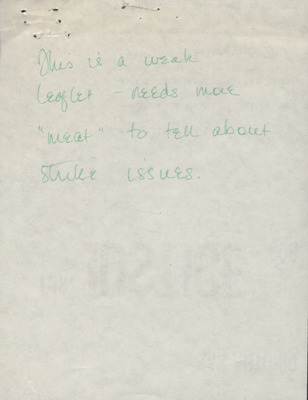 This is a weak
leaflet - needs more
"meat" to tell about
strike issues.